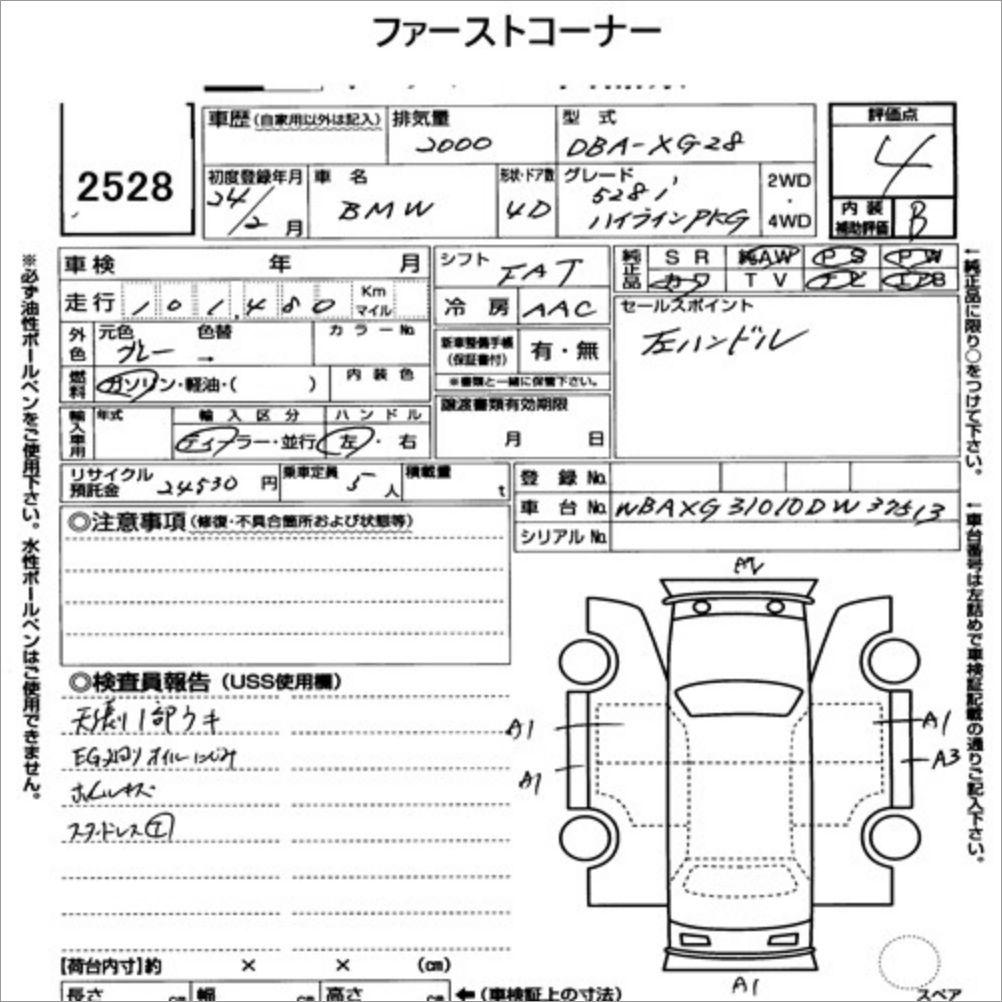 ファーストコーナー
2528
車歴(自家用以外は記入) 排気量 2000 型式 DBA-XG28
初度登録年月 24/2月 車名 BMW 形状・ドア数 4D グレード 528i ハイラインPKG 2WD・4WD
評価点 4
内装補助評価 B
車検 年 月 シフト FAT 純正品 SR 純AW PS PW
走行 101,480 Km マイル 冷房 AAC カワ TV ナビ エアB
外色 元色 グレー 色替 → カラーNo. 新車整備手帳(保証書付) 有・無 セールスポイント
左ハンドル
燃料 ガソリン・軽油・( ) 内装色 ※書類と一緒に保管下さい。
輸入車用 年式 輸入区分 ディーラー・並行 ハンドル 左・右 譲渡書類有効期限 月 日
リサイクル預託金 24530円 乗車定員 5人 積載量 t 登録No.
車台No. WBAXG31010DW37513
シリアルNo.
◎注意事項(修復・不具合箇所および状態等)
◎検査員報告(USS使用欄)
天張り1部ウキ
EG廻りオイルにじみ
ホイルキズ
スタッドレス④
A2
A1 A1
A1 A3
A1
スペア
【荷台内寸】約 × × (cm)
長さ cm 幅 cm 高さ cm ←(車検証上の寸法)
※必ず油性ボールペンをご使用下さい。水性ボールペンはご使用できません。
←純正品に限り○をつけて下さい。
←車台番号は左詰めで車検証記載の通りご記入下さい。